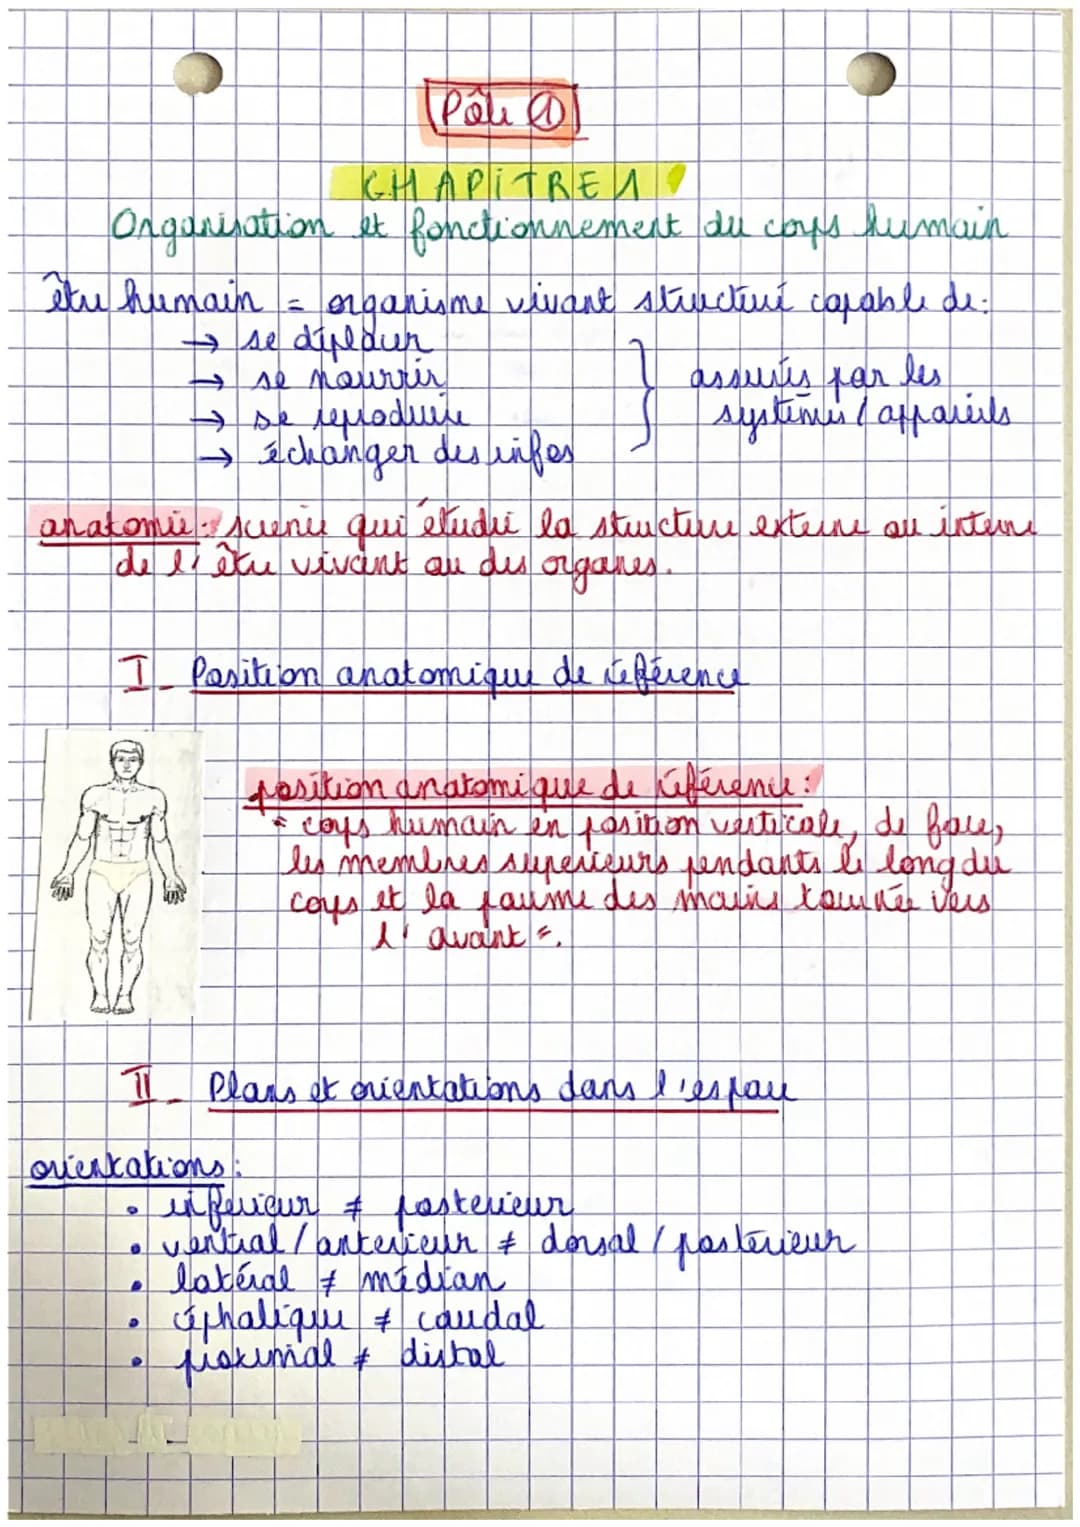 Pôle ①
CHAPITRE 1
Organisation et fonctionnement du corps humain
être humain = organisme vivant structuré capable de:
→ se déplacer
→ se nourrir
→ se reproduire
→ échanger des infos
} assurés par les
systèmes / appareils
anatomie: science qui étudie la structure externe ou interne
de l'être vivant ou des organes.
I_ Position anatomique de référence
position anatomique de référence:
= corps humain en position verticale, de face,
les membres superieurs pendants le long du
corps et la paume des mains tournée vers
l'avant =.
II_ Plans et orientations dans l'espace
orientations:
• inférieur ≠ posterieur
• ventral / anterieur ≠ dorsal / postérieur
• latéral ≠ médian
• céphalique ≠ caudal
• proximal ≠ distal